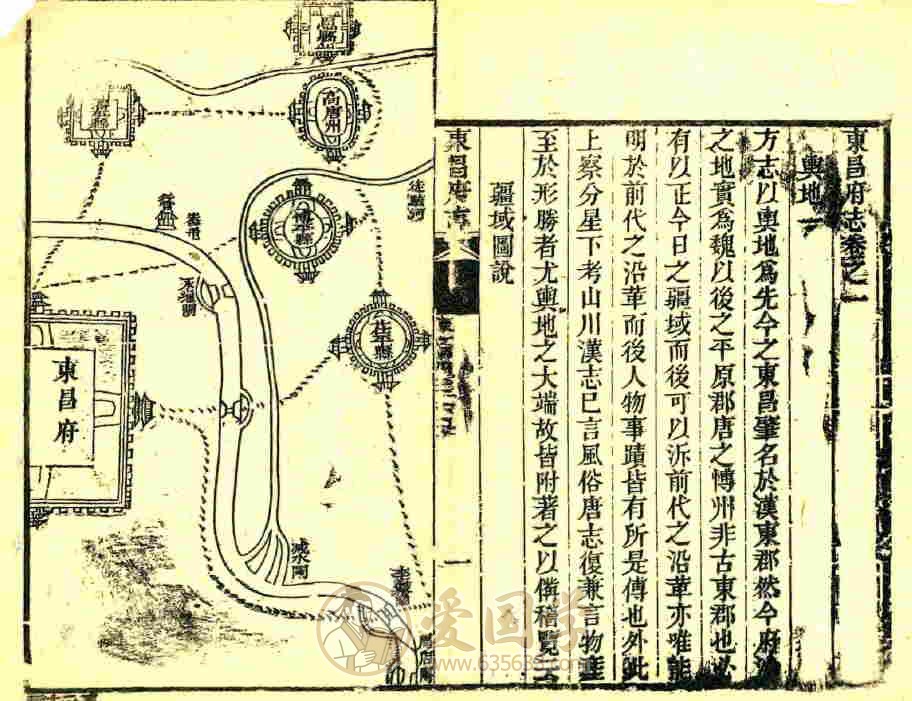 東昌府志卷之一
輿地一
方志以輿地爲先今之東昌肇名於漢東郡然今府治
之地實爲魏以後之平原郡唐之博州非古東郡也必
有以正今日之疆域而後可以泝前代之沿革亦唯能
明於前代之沿革而後人物事蹟皆有所是傳也外此
上察分星下考山川漢志已言風俗唐志復兼言物產
至於形勝者尤輿地之大端故皆附著之以備稽覽
疆域圖說
東昌府志
一
高唐州
博平縣
茌平縣
東昌府
徒駭河
減水閘
爱国学
www.635633.com